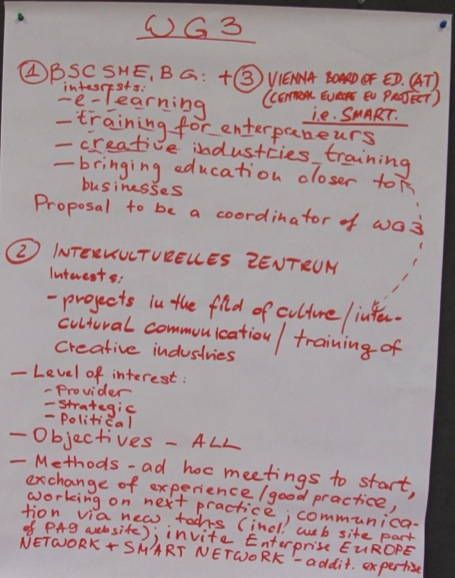 WG3
① BSC SME, BG: + ③ VIENNA BOARD OF ED. (AT)
interests: (CENTRAL EUROPE EU PROJECT)
- e-learning i.e. SMART.
- training for enterpreneurs
- creative industries training
- bringing education closer to
businesses
Proposal to be a coordinator of WG3
② INTERKULTURELLES ZENTRUM
Interests:
- projects in the fild of culture/inter-
cultural communication/training of
creative industries
- Level of interest:
- Provider
- Strategic
- Political
- Objectives - ALL
- Methods - ad hoc meetings to start,
exchange of experience/good practice,
working on next practice, communica-
tion via new tools (incl. web site part
of PA9 website); invite Enterprise EUROPE
NETWORK + SMART NETWORK - addit. expertise